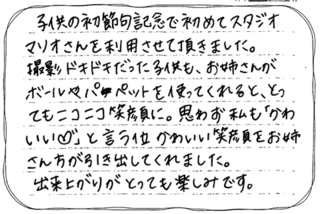 子供の初節句記念で初めてスタジオ
マリオさんを利用させて頂きました。
撮影ドキドキだった子供も、お姉さんが
ボールやパペットを使ってくれると、とっ
てもニコニコ笑顔に。思わず私も「かわ
いい♡」と言う位かわいい笑顔をお姉
さん方が引き出してくれました。
出来上がりがとっても楽しみです。